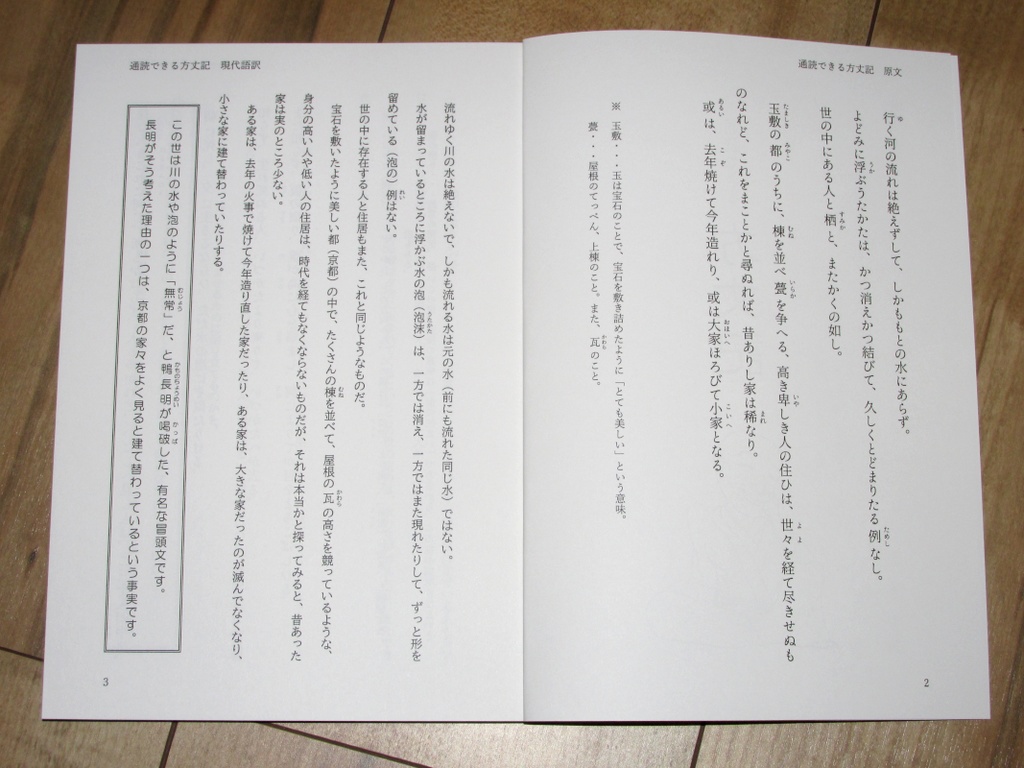 通読できる方丈記　原文
行く河の流れは絶えずして、しかももとの水にあらず。
よどみに浮ぶうたかたは、かつ消えかつ結びて、久しくとどまりたる例なし。
世の中にある人と栖と、またかくの如し。
玉敷の都のうちに、棟を並べ甍を争へる、高き卑しき人の住ひは、世々を経て尽きせぬも
のなれど、これをまことかと尋ぬれば、昔ありし家は稀なり。
或は、去年焼けて今年造れり、或は大家ほろびて小家となる。
※　玉敷・・・玉は宝石のことで、宝石を敷き詰めたように「とても美しい」という意味。
甍・・・屋根のてっぺん、上棟のこと。また、瓦のこと。
2
通読できる方丈記　現代語訳
流れゆく川の水は絶えないで、しかも流れる水は元の水（前にも流れた同じ水）ではない。
水が留まっているところに浮かぶ水の泡（泡沫）は、一方では消え、一方ではまた現れたりして、ずっと形を
留めている（泡の）例はない。
世の中に存在する人と住居もまた、これと同じようなものだ。
宝石を敷いたように美しい都（京都）の中で、たくさんの棟を並べて、屋根の瓦の高さを競っているような、
身分の高い人や低い人の住居は、時代を経てもなくならないものだが、それは本当かと探ってみると、昔あった
家は実のところ少ない。
ある家は、去年の火事で焼けて今年造り直した家だったり、ある家は、大きな家だったのが滅んでなくなり、
小さな家に建て替わっていたりする。
この世は川の水や泡のように「無常」だ、と鴨長明が喝破した、有名な冒頭文です。
長明がそう考えた理由の一つは、京都の家々をよく見ると建て替わっているという事実です。
3